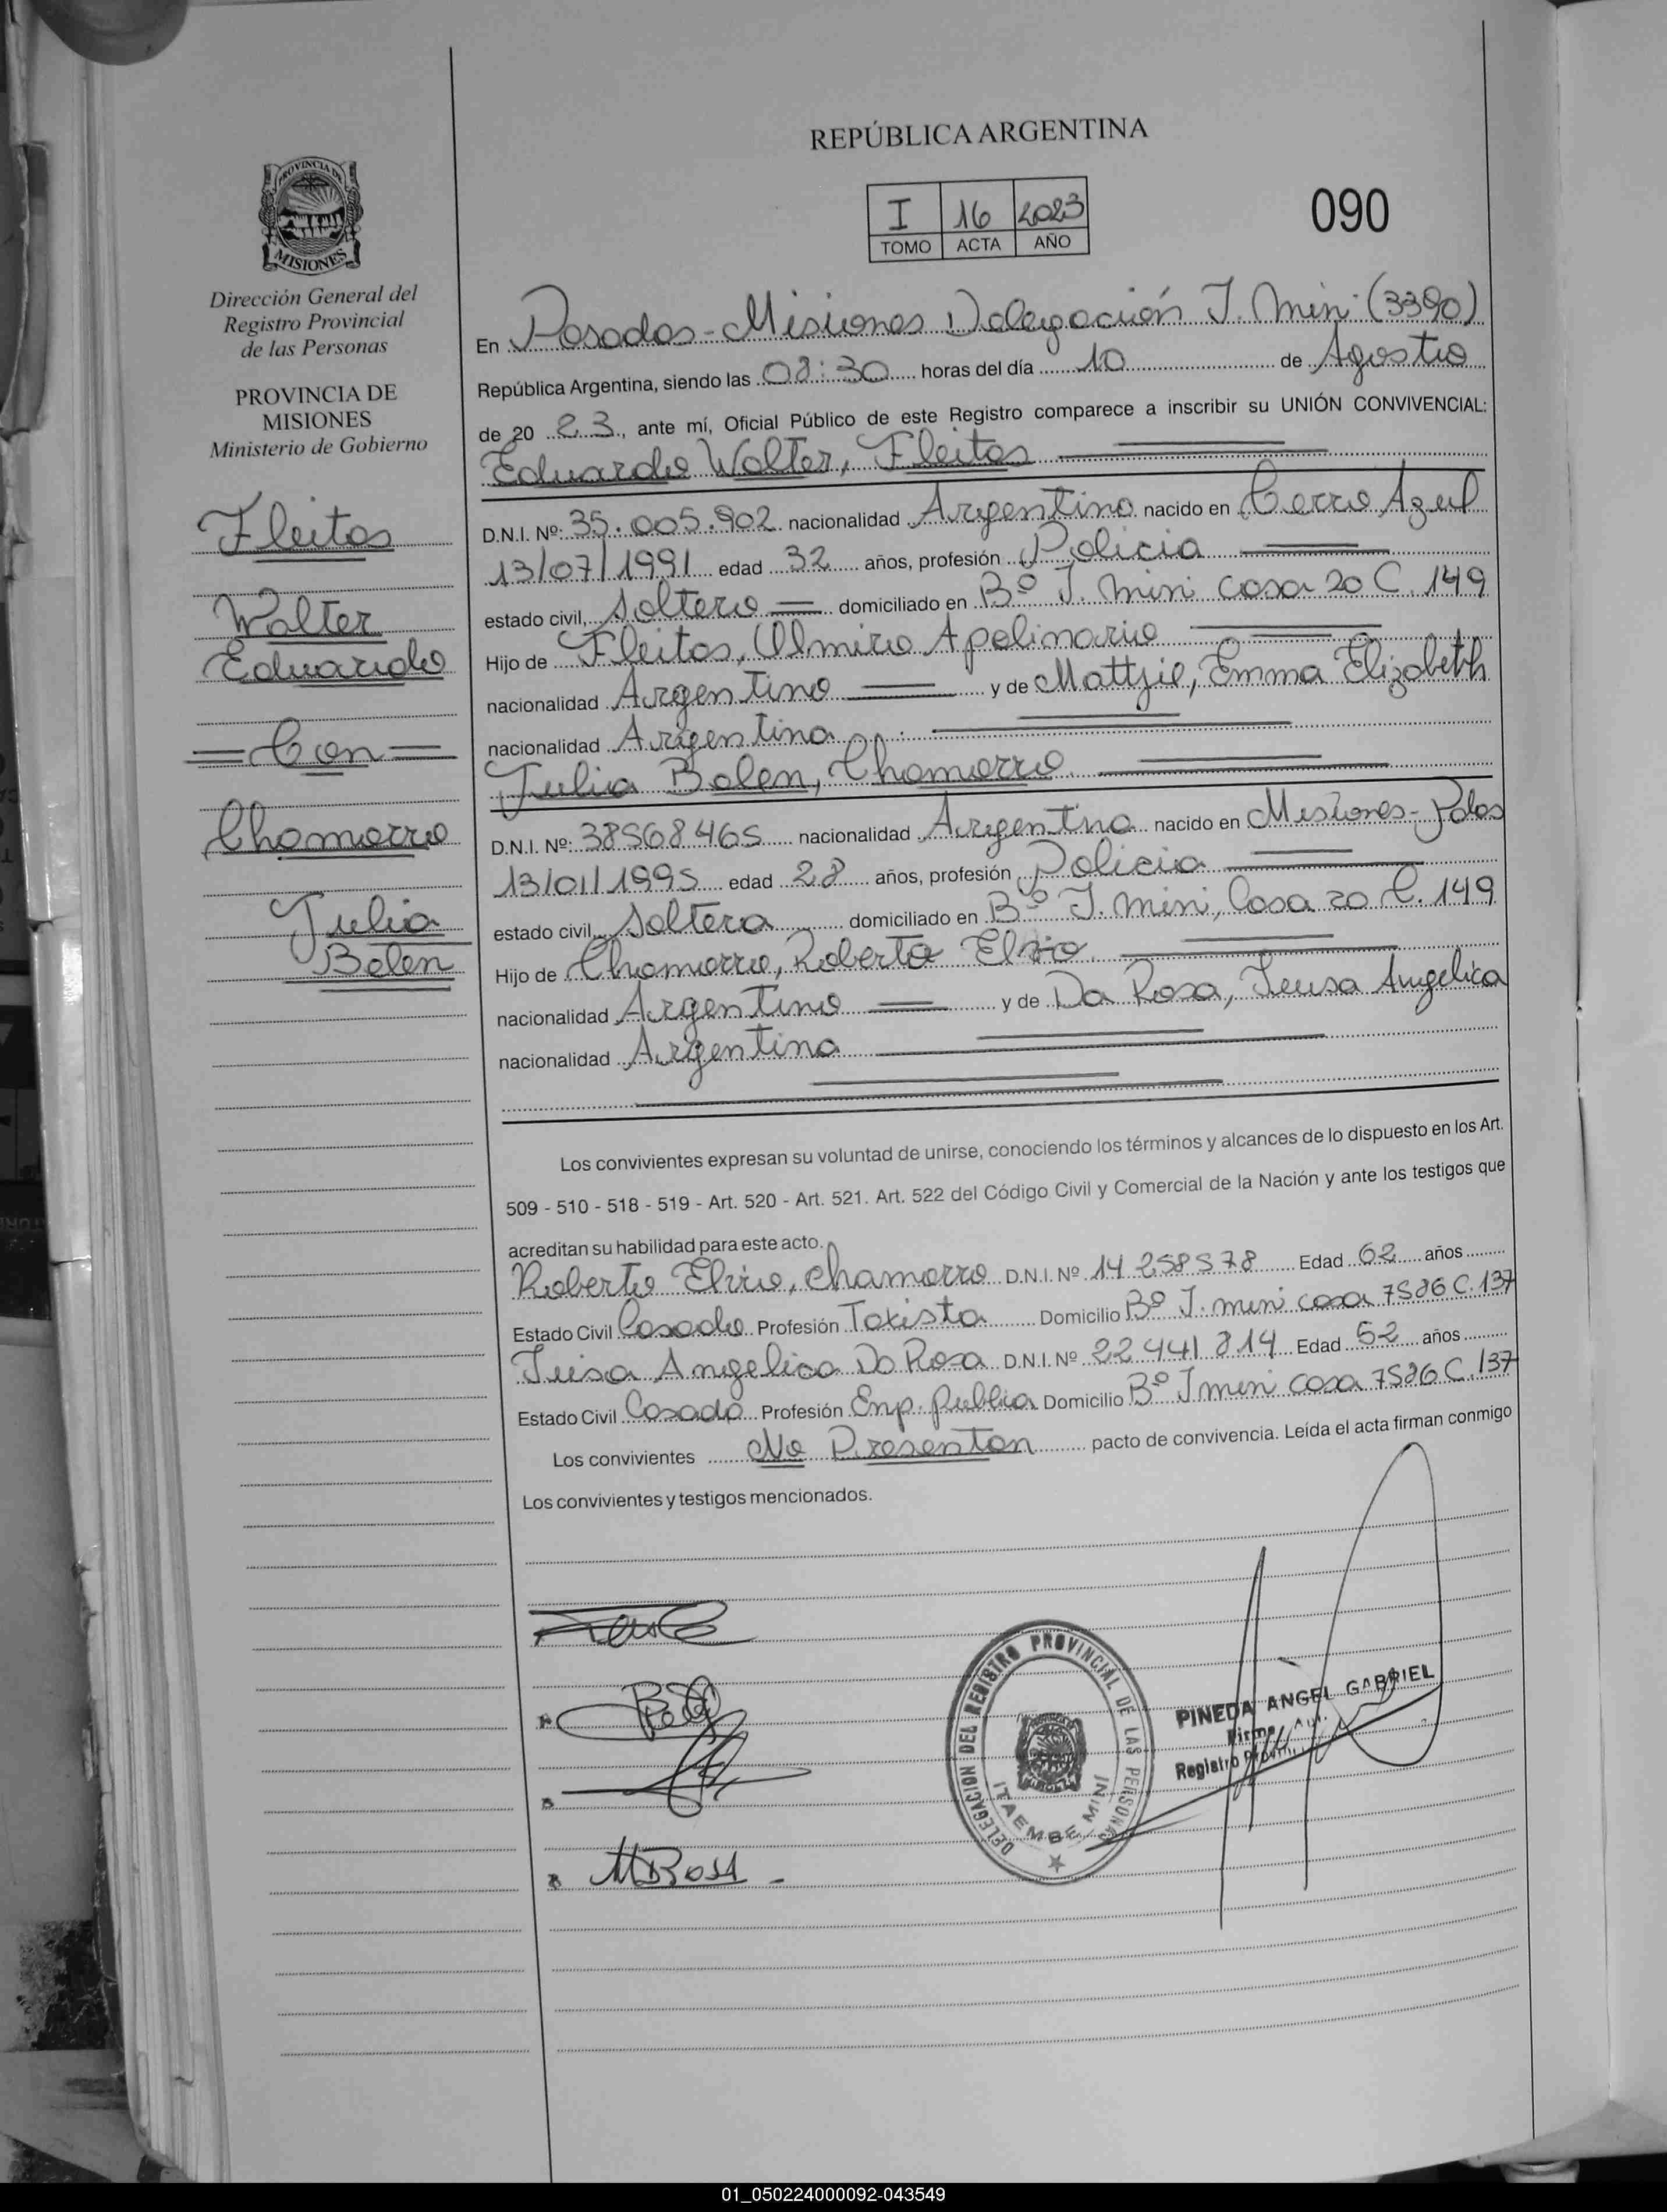 REPÚBLICA ARGENTINA
I 16 2023
TOMO ACTA AÑO
090
PROVINCIA DE
MISIONES
Dirección General del
Registro Provincial
de las Personas
PROVINCIA DE
MISIONES
Ministerio de Gobierno
Fleitas
Walter
Eduardo
Con
Chamorro
Julia
Belen
En Posadas - Misiones Delegación I. Mini (3390)
República Argentina, siendo las 08:30 horas del día 10 de Agosto
de 20 23, ante mí, Oficial Público de este Registro comparece a inscribir su UNIÓN CONVIVENCIAL:
Eduardo Walter, Fleitas
D.N.I. Nº: 35.005.902 nacionalidad Argentino nacido en Cerro Azul
13/07/1991 edad 32 años, profesión Policia
estado civil, Soltero domiciliado en Bº I. Mini Casa 20 C. 149
Hijo de Fleitas, Olmiro Apolinario
nacionalidad Argentino y de Mattjie, Emma Elizabeth
nacionalidad Argentina
Julia Belen, Chamorro
D.N.I. Nº: 38568465 nacionalidad Argentina nacido en Misiones - Pdas
13/01/1995 edad 28 años, profesión Policia
estado civil, Soltera domiciliado en Bº I. Mini, Casa 20 C. 149
Hijo de Chamorro, Roberto Elvio
nacionalidad Argentino y de Da Rosa, Angelica
nacionalidad Argentina
Los convivientes expresan su voluntad de unirse, conociendo los términos y alcances de lo dispuesto en los Art.
509 - 510 - 518 - 519 - Art. 520 - Art. 521. Art. 522 del Código Civil y Comercial de la Nación y ante los testigos que
acreditan su habilidad para este acto.
Roberto Elvio, Chamorro D.N.I. Nº 14 258578 Edad 62 años
Estado Civil Casado Profesión Taxista Domicilio Bº I. mini casa 7586 C. 137
Angelica Da Rosa D.N.I. Nº 22 441 814 Edad 52 años
Estado Civil Casada Profesión Emp. publica Domicilio Bº I mini casa 7586 C. 137
Los convivientes No Presentan pacto de convivencia. Leída el acta firman conmigo
Los convivientes y testigos mencionados.
DELEGACION DEL REGISTRO PROVINCIAL DE LAS PERSONAS
ITAEMBE MINI
PINEDA ANGEL GABRIEL
Firma
Registro
01_050224000092-043549